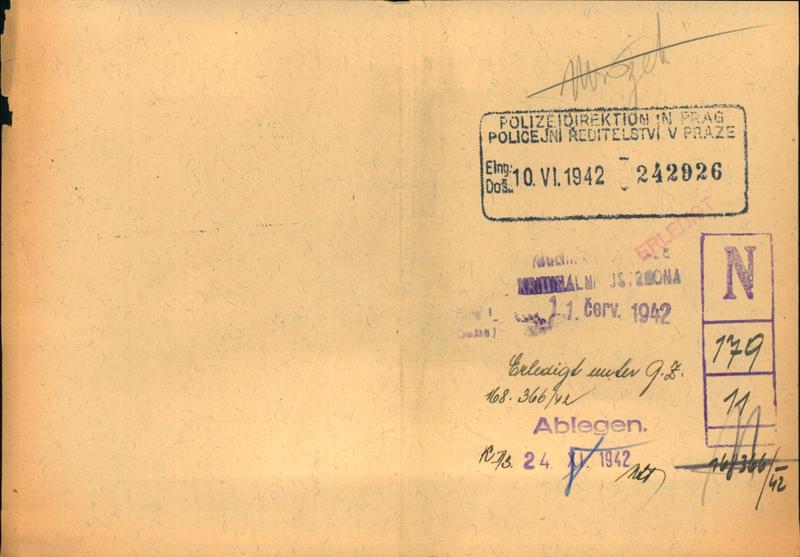 POLIZEIDIREKTION IN PRAG
POLICEJNÍ ŘEDITELSTVÍ V PRAZE
Eing.:
Doš.:
10. VI. 1942
242926
ERLEDIGT
1. červ. 1942
N
179
11
Erledigt unter G.Z.
168.366/42
Ablegen.
24. XI. 1942
168366/42